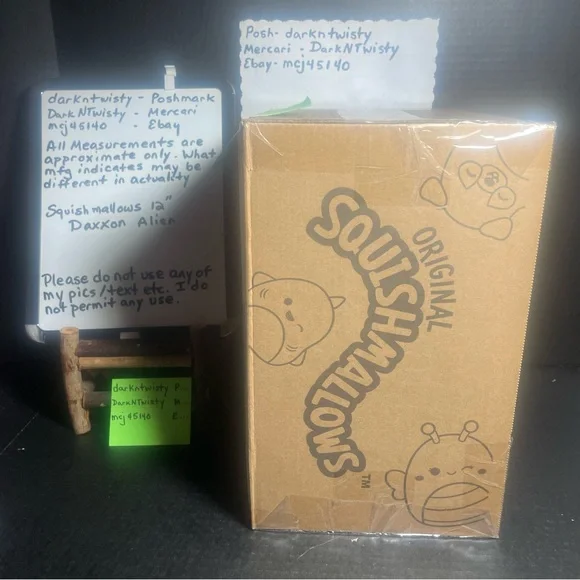 Posh- darkntwisty
Mercari - DarkNTwisty
Ebay- mcj45140
darkntwisty - Poshmark
DarkNTwisty - Mercari
mcj45140 - Ebay
All Measurements are
approximate only. What
mfg indicates may be
different in actuality
Squishmallows 12"
Daxxon Alien
Please do not use any of
my pics/text etc. I do
not permit any use.
darkntwisty P
DarkNTwisty M
mcj45140 E
ORIGINAL
SQUISHMALLOWS
TM